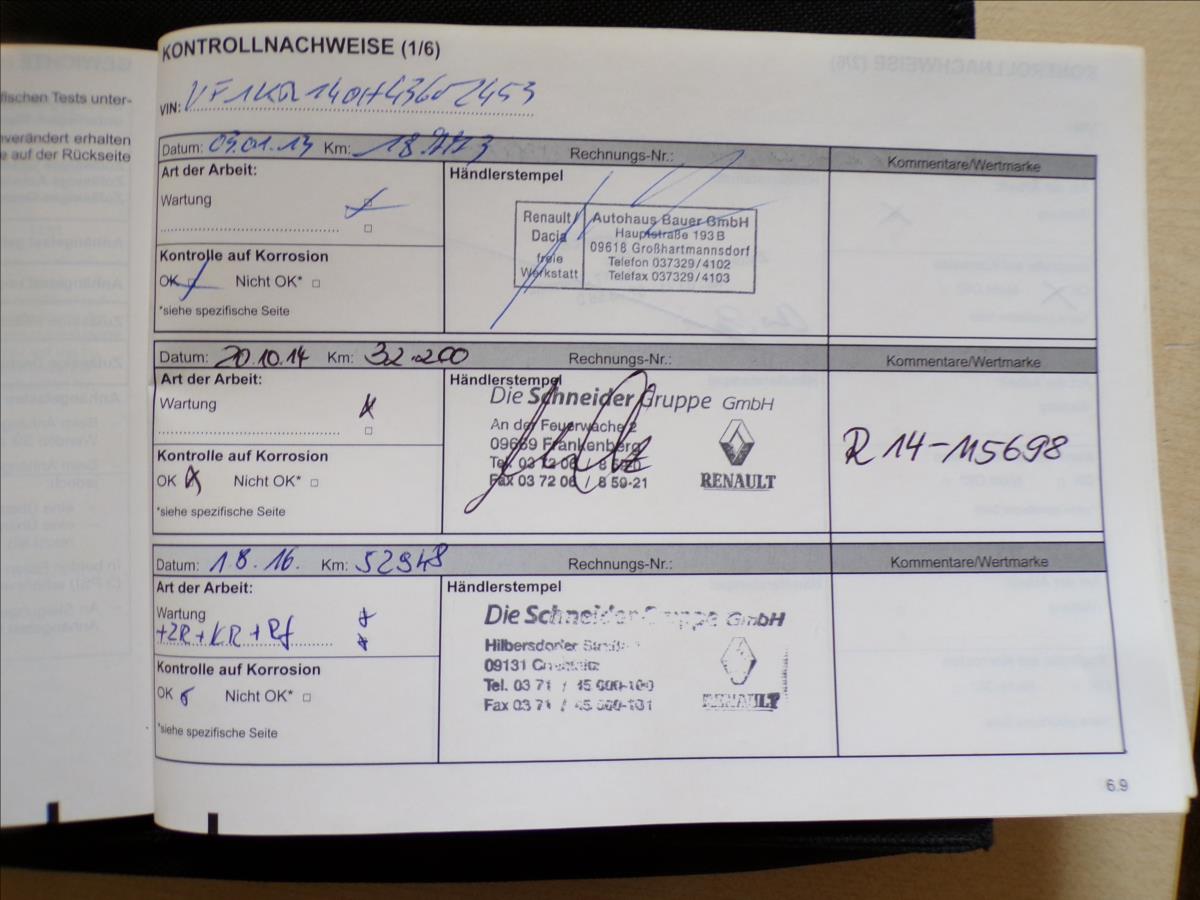 fischen Tests unter-
verändert erhalten
e auf der Rückseite
KONTROLLNACHWEISE (1/6)
VIN:
Datum: 03.01.13 Km: Rechnungs-Nr.: Kommentare/Wertmarke
Art der Arbeit:
Wartung
Kontrolle auf Korrosion
OK Nicht OK*
*siehe spezifische Seite
Händlerstempel
Renault
Dacia
freie
Werkstatt
Autohaus Bauer GmbH
Hauptstraße 193 B
09618 Großhartmannsdorf
Telefon 037329/4102
Telefax 037329/4103
Datum: 20.10.14 Km: 32.200 Rechnungs-Nr.: Kommentare/Wertmarke
Art der Arbeit:
Wartung
Kontrolle auf Korrosion
OK Nicht OK*
*siehe spezifische Seite
Händlerstempel
Die Schneider Gruppe GmbH
An der Feuerwache 2
09669 Frankenberg
Tel. 03 72 06 / 8 59-20
Fax 03 72 06 / 8 59-21
RENAULT
R 14-115698
Datum: 1.8.16. Km: 52948 Rechnungs-Nr.: Kommentare/Wertmarke
Art der Arbeit:
Wartung
+ZR+KR+Rf
Kontrolle auf Korrosion
OK Nicht OK*
*siehe spezifische Seite
Händlerstempel
Die Schneider Gruppe GmbH
Hilbersdorfer Straße
09131 Chemnitz
Tel. 03 71 / 45 000-100
Fax 03 71 / 45 000-101
RENAULT
6.9